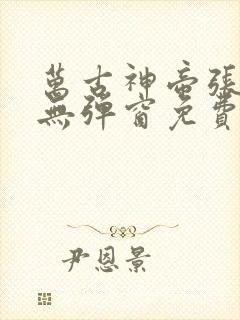 萬古神帝張
無彈窗免費
尹恩景